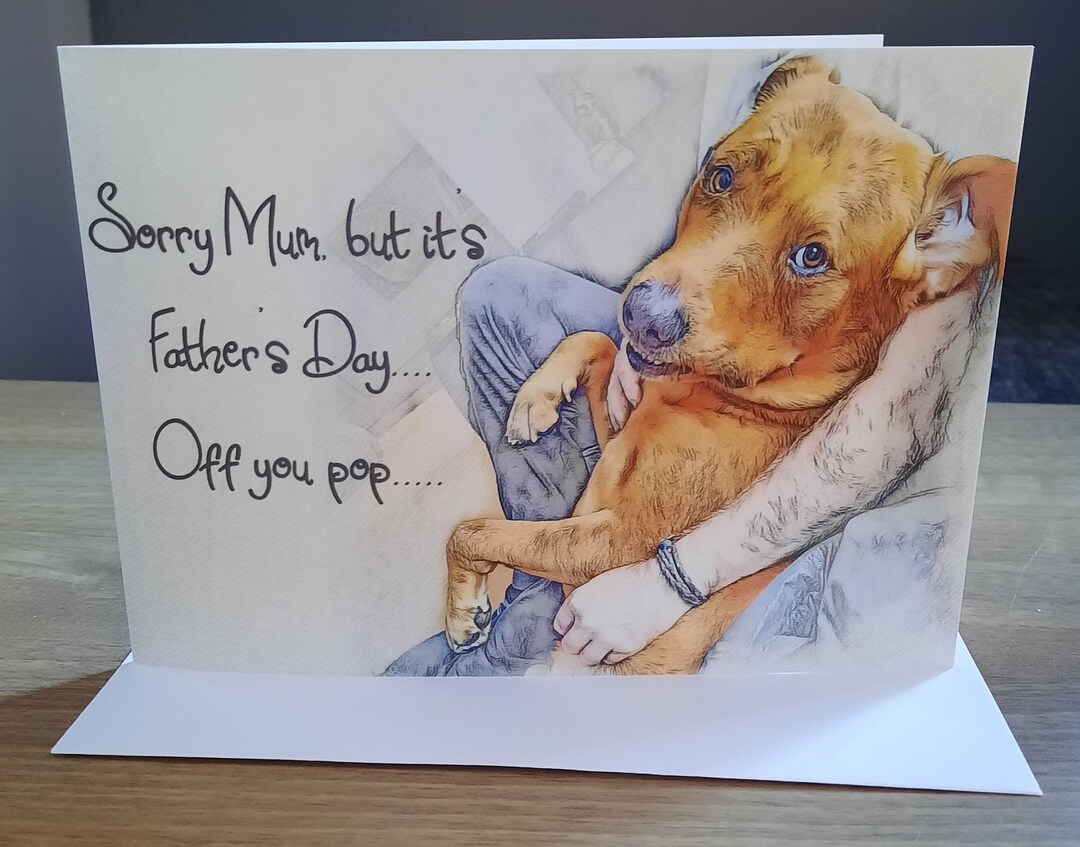 Sorry Mum, but it's
Father's Day....
Off you pop.....